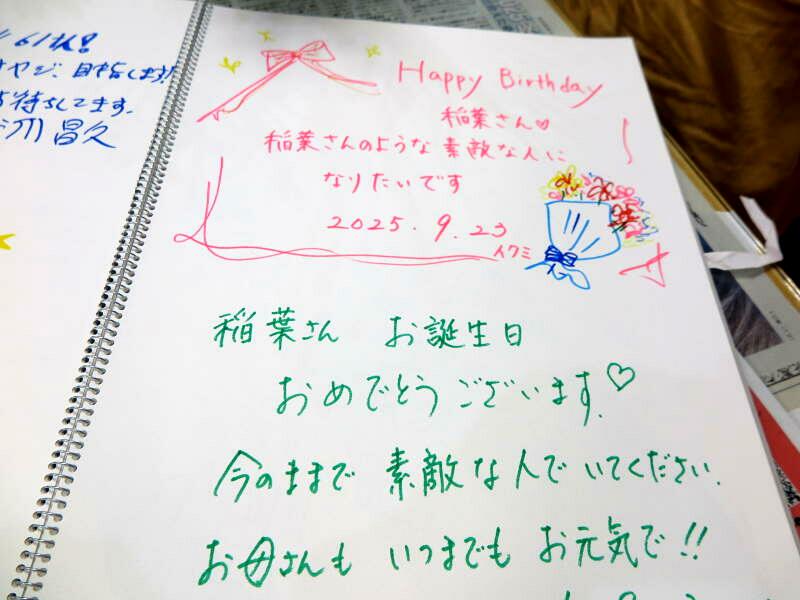 61才!
オヤジ、目指します!
お待ちしてます。
昌久
Happy Birthday
稲葉さん♡
稲葉さんのような素敵な人に
なりたいです
2025.9.23
イクミ
稲葉さん お誕生日
おめでとうございます。♡
今のままで 素敵な人で いてください。
お母さんも いつまでも お元気で!!